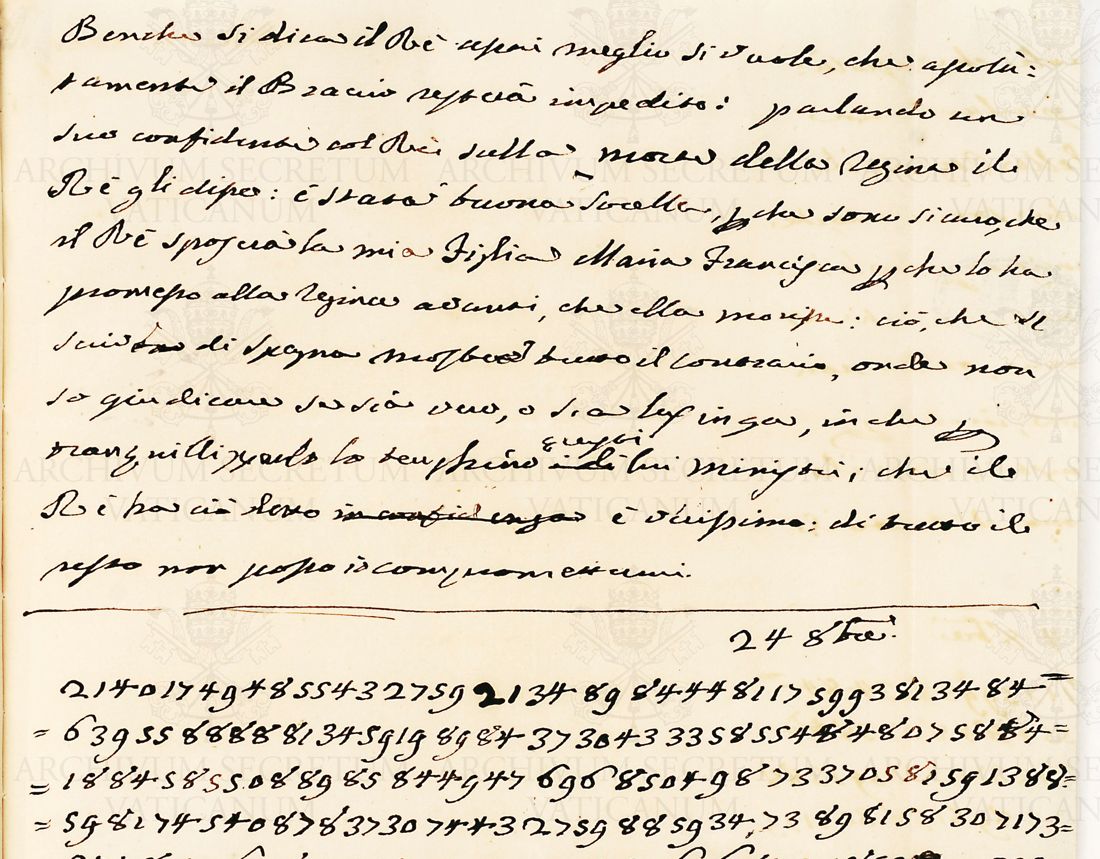 Benche si dica il Rè assai meglio si vuole, che assolu:
tamente il Braccio resterà impedito: parlando un
suo confidente col Rè sulla morte della Regina il
Rè gli disse: è stata buona Sorella, pche sono sicuro, che
il Rè sposerà la mia Figlia Maria Francisca pche lo ha
promesso alla Regina avanti, che ella morisse: ciò, che si
di Spagna tutto il contrario, onde non
so giudicare se sia vero, o sia lusinga, in che
tranquillizzando lo questi lui Ministri; che il
Rè ha ciò detto in confidenza è verissimo: di tutto il
resto non posso io compromettermi.
24 8bre.
214017494855432759213489844481175993813484=
=639558888813459198984373043335855448480758484=
=188458550889858449476968504987337058159138 8=
=5981745408783730744327598859347389815830717 3=
ARCHIVUM SECRETUM
VATICANUM